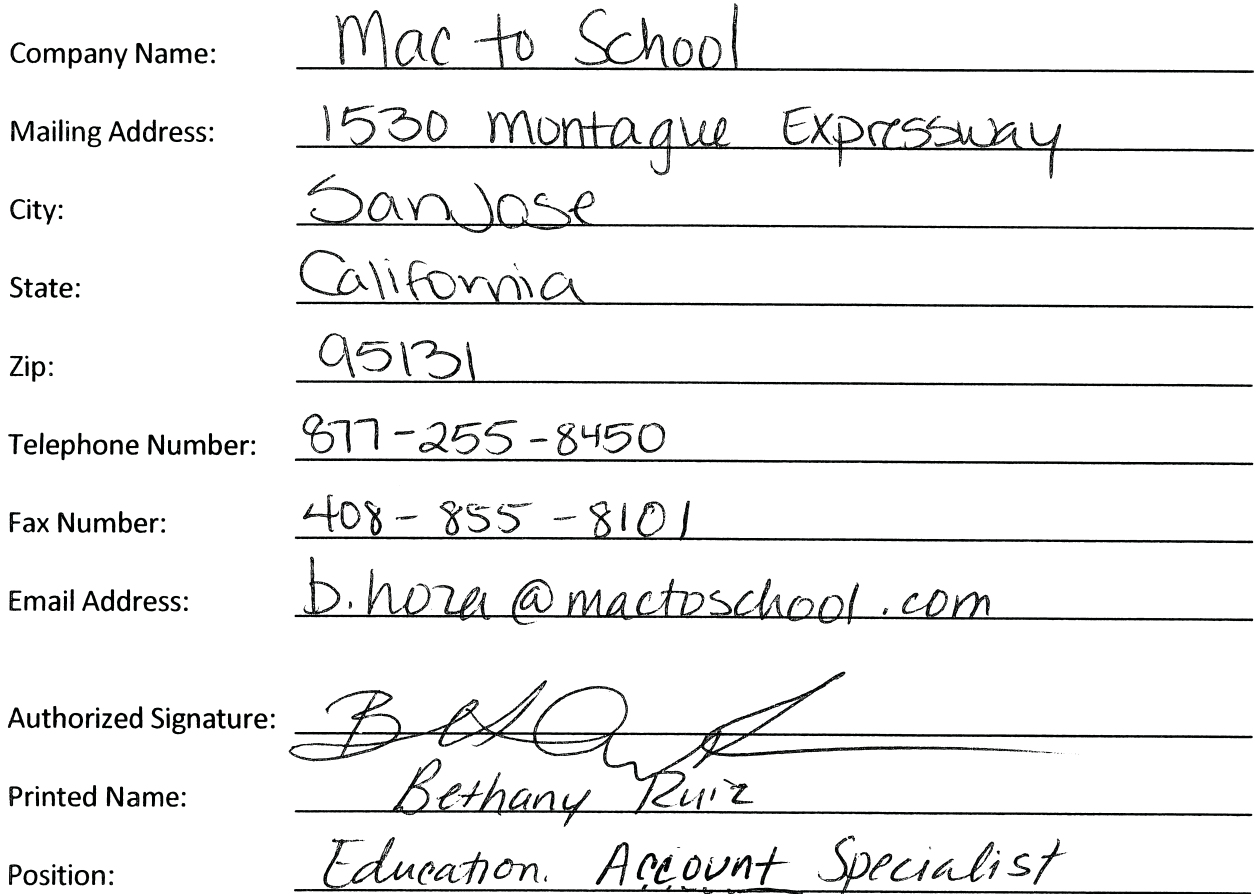 Company Name: Mac to School
Mailing Address: 1530 Montague Expressway
City: San Jose
State: California
Zip: 95131
Telephone Number: 877-255-8450
Fax Number: 408-855-8101
Email Address: b.hoza@mactoschool.com
Authorized Signature:
Printed Name: Bethany Ruiz
Position: Education Account Specialist